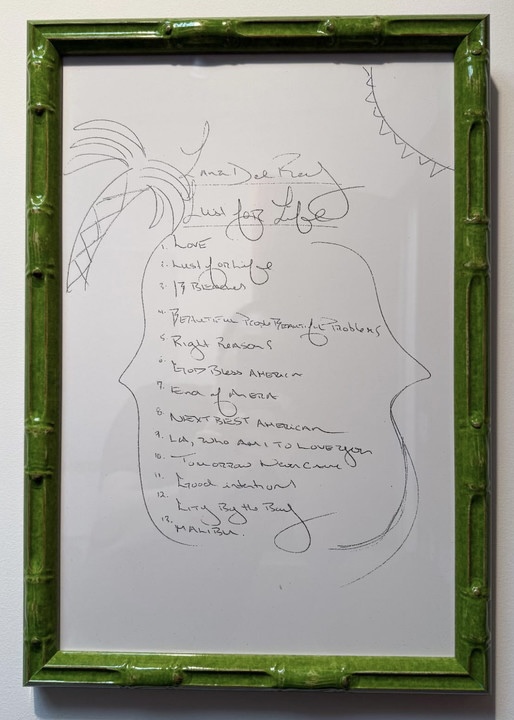 Lana Del Rey
Lust for Life
1. Love
2. Lust for Life
3. 13 Beaches
4. Beautiful People Beautiful Problems
5. Right Reasons
6. God Bless America
7. End of an Era
8. Next Best American
9. LA, Who Am I To Love You
10. Tomorrow Never Came
11. Good intentions
12. City By the Bay
13. Malibu.